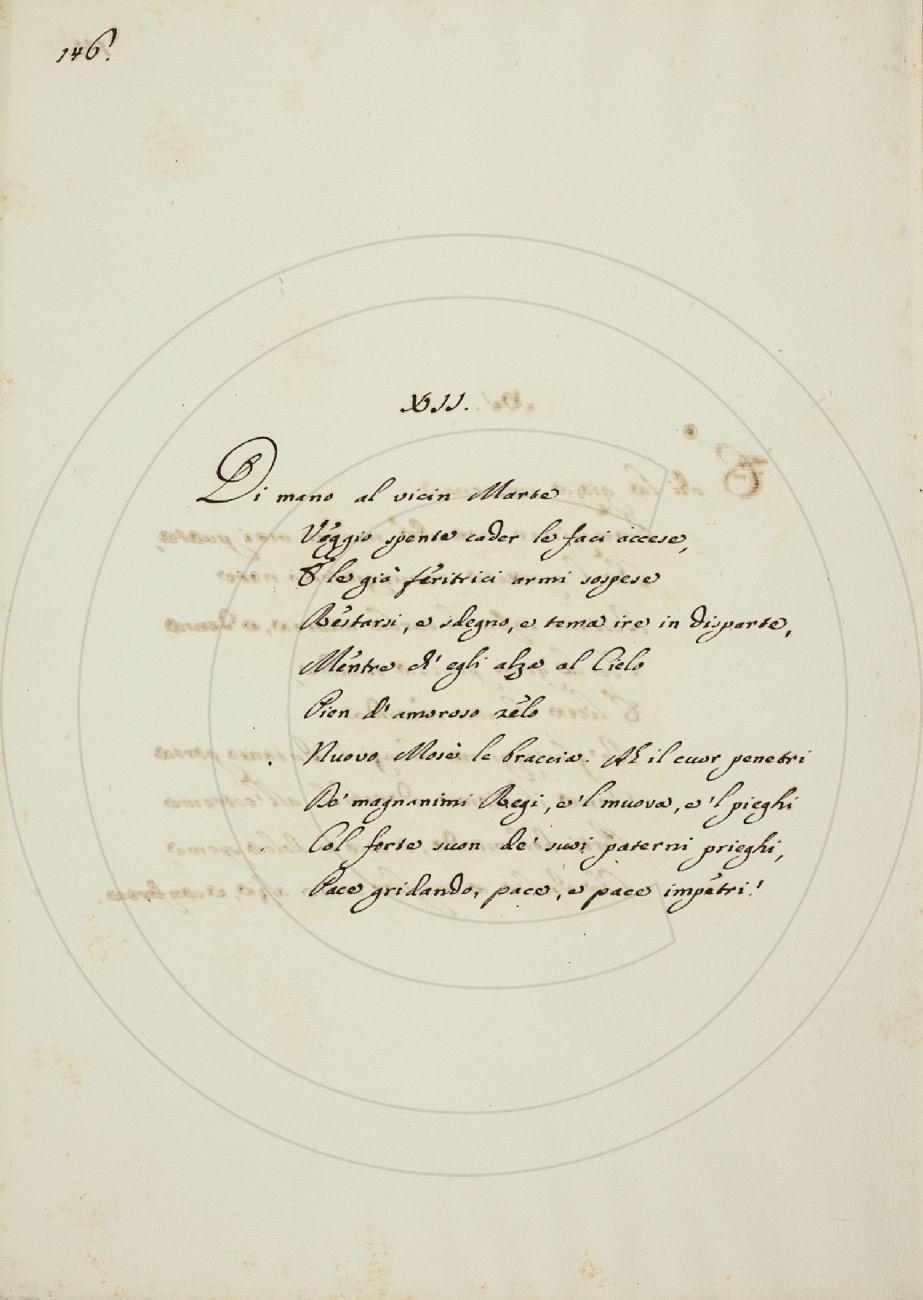 146.
XII.
Di mano al vicin Marte
Véggio spente cader le faci accese,
E le già féritrici armi sospese
Réstarsi, e sdegno, e tema ire in disparte,
Méntre ch' egli alza al Cielo
Pien d' amoroso zélo
Nuovo Mosè le braccia. Ah il cuor penetri
De' magnanimi Regi, e 'l muova, e 'l pieghi
Col forte suon de' suoi paterni prieghi,
Pace gridando, pace, e pace impétri!